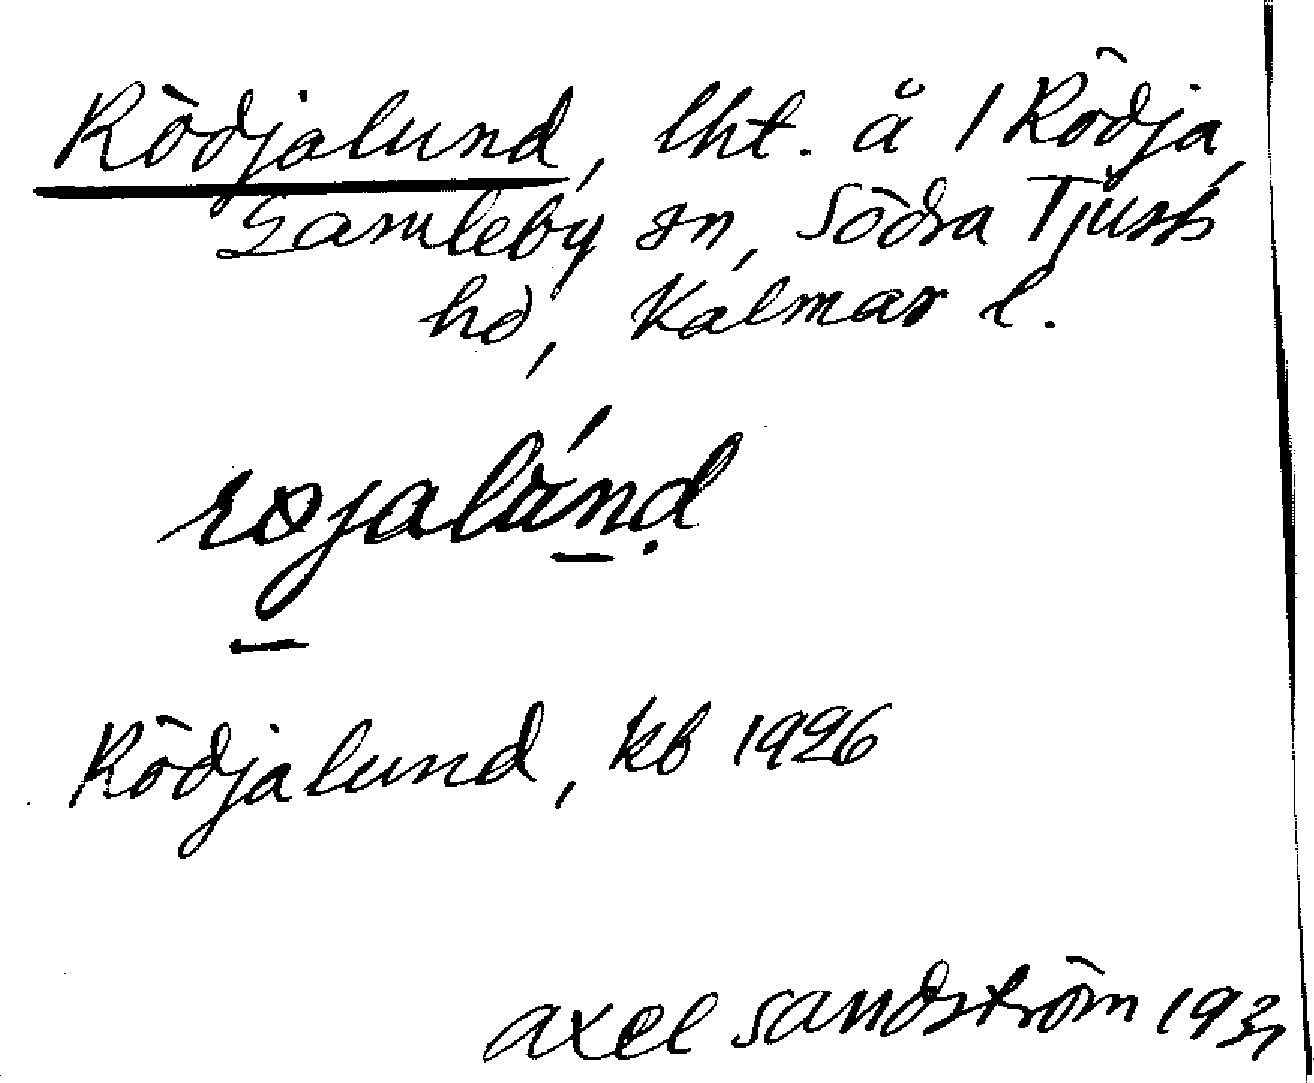 Rödjalund, lht. å 1 Rödja,
Gamleby sn, Södra Tjusts
hd, Kalmar l.
røjalúnd
Rödjalund, kb 1926
Axel Sandström 1931